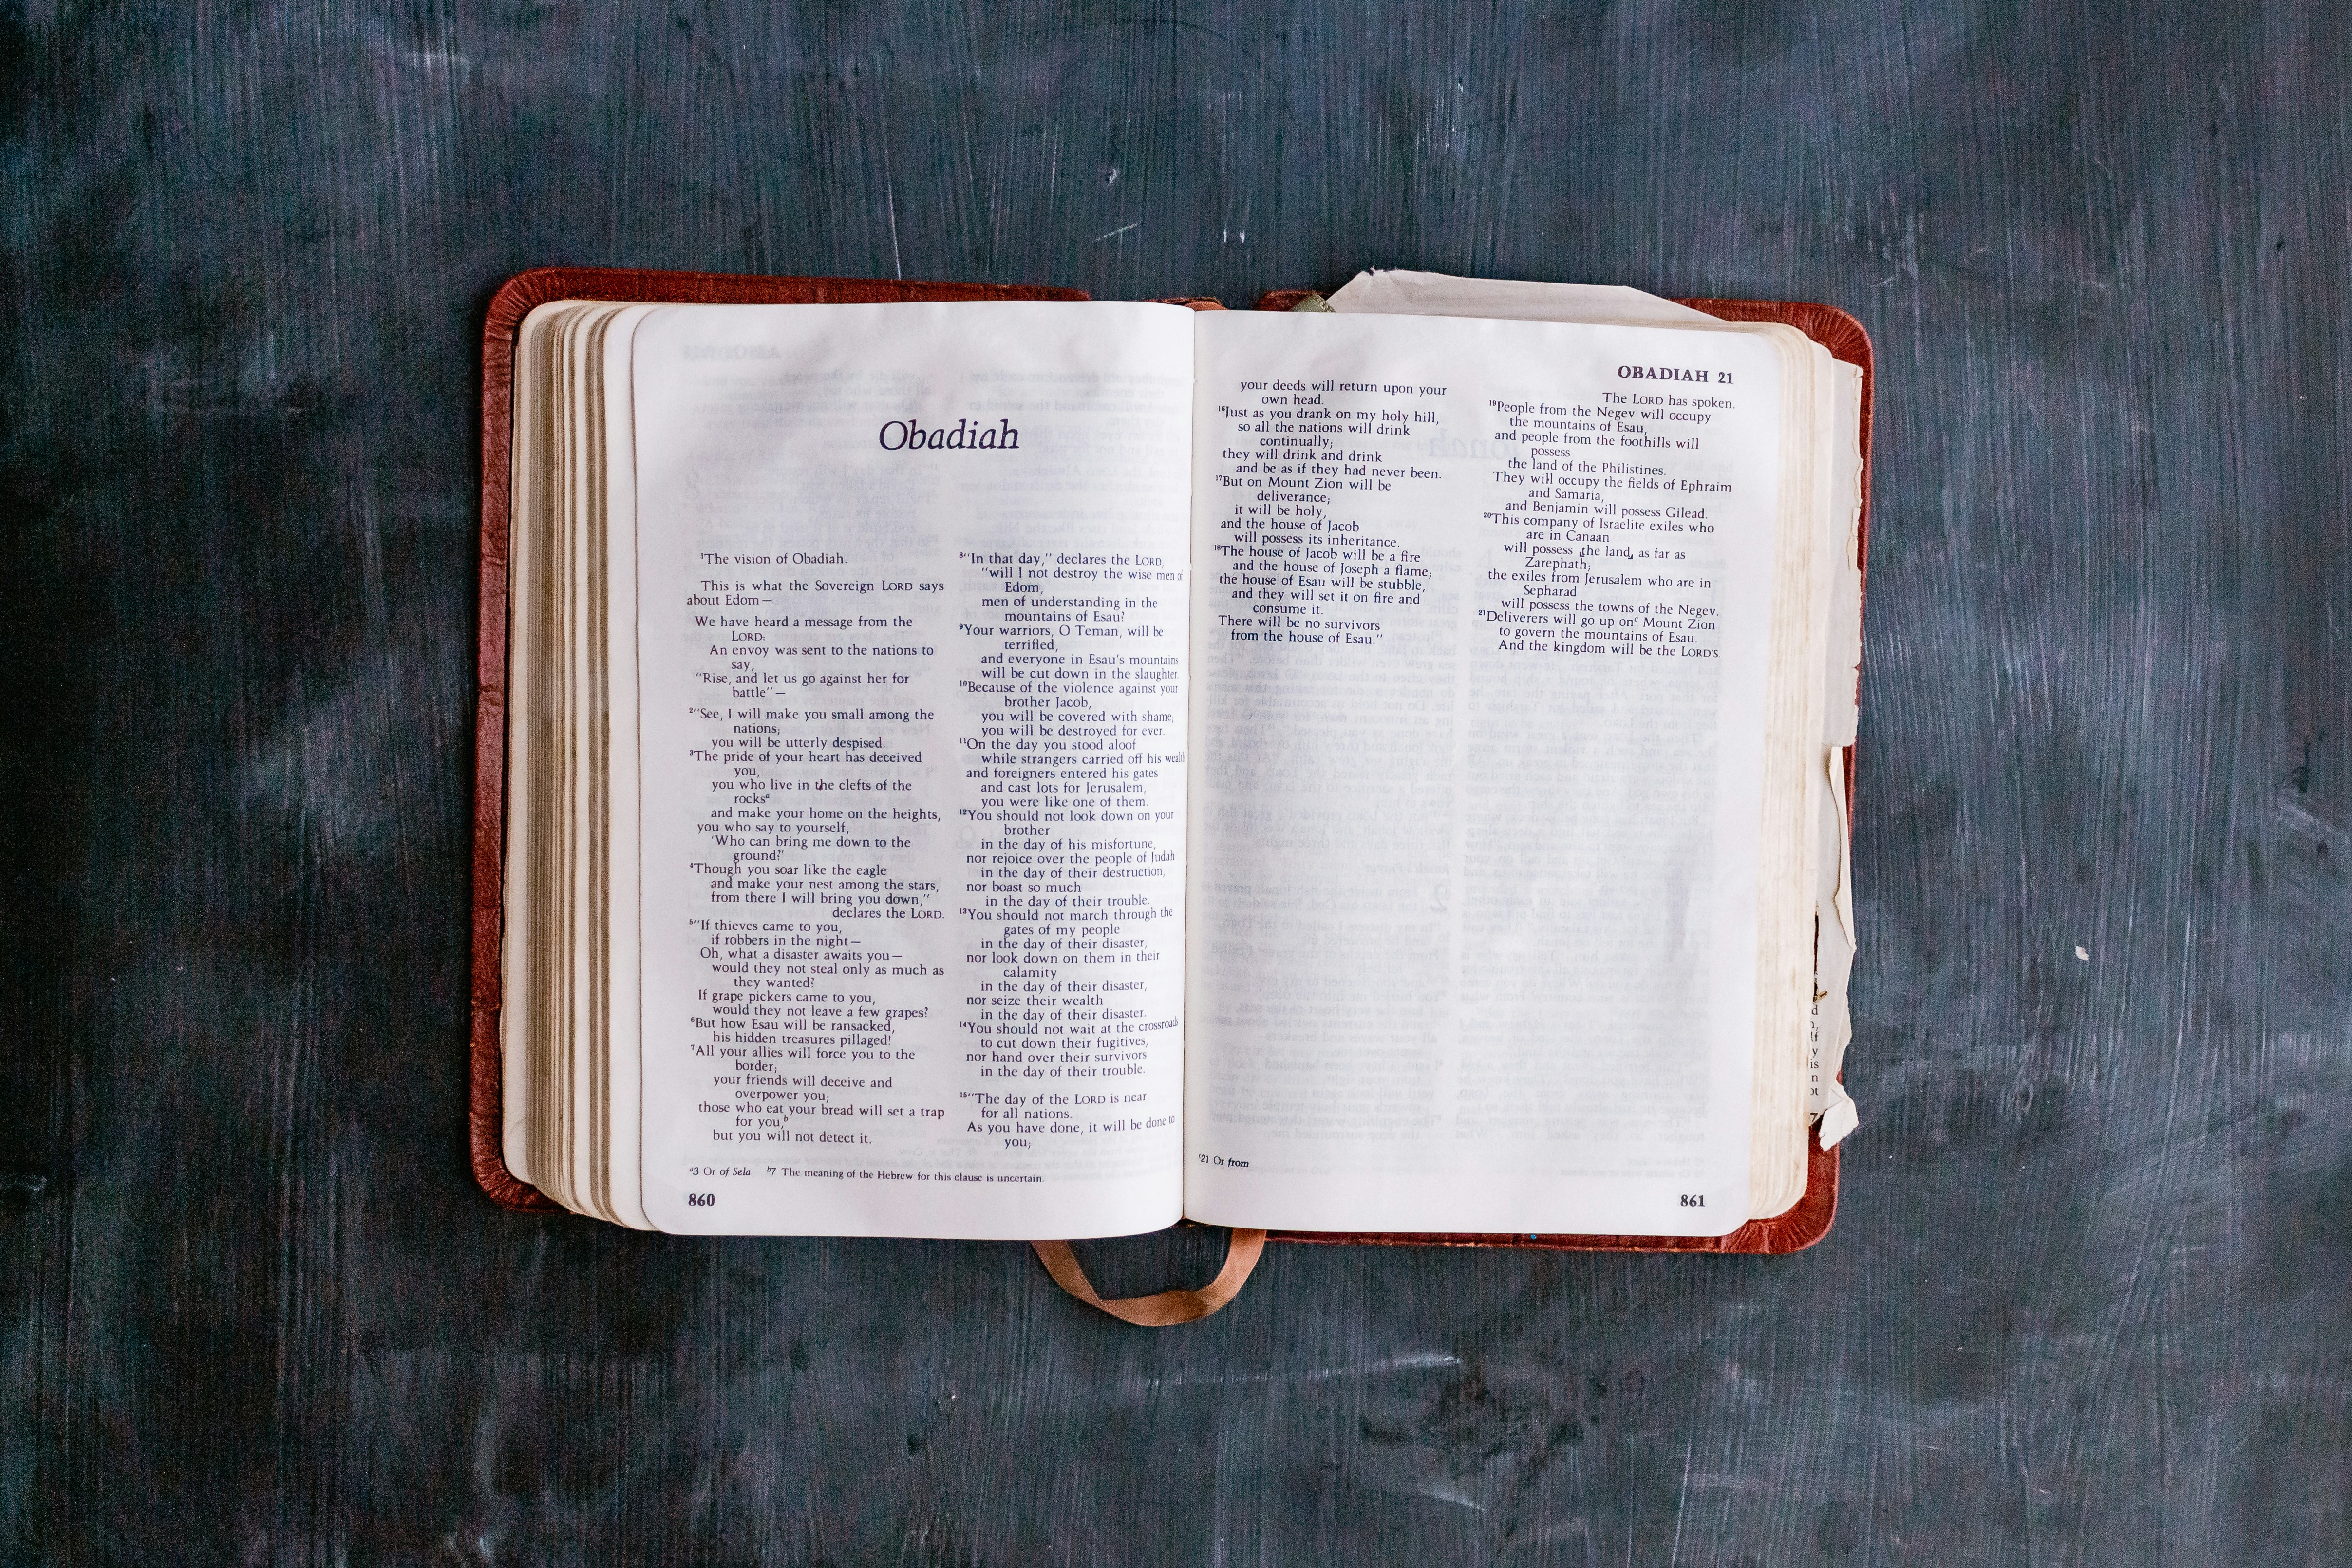 Obadiah
¹The vision of Obadiah.
This is what the Sovereign LORD says
about Edom—
We have heard a message from the
LORD:
An envoy was sent to the nations to
say,
"Rise, and let us go against her for
battle"—
²"See, I will make you small among the
nations;
you will be utterly despised.
³The pride of your heart has deceived
you,
you who live in the clefts of the
rocksᵃ
and make your home on the heights,
you who say to yourself,
'Who can bring me down to the
ground?'
⁴Though you soar like the eagle
and make your nest among the stars,
from there I will bring you down,"
declares the LORD.
⁵"If thieves came to you,
if robbers in the night—
Oh, what a disaster awaits you—
would they not steal only as much as
they wanted?
If grape pickers came to you,
would they not leave a few grapes?
⁶But how Esau will be ransacked,
his hidden treasures pillaged!
⁷All your allies will force you to the
border;
your friends will deceive and
overpower you;
those who eat your bread will set a trap
for you,ᵇ
but you will not detect it.
⁸"In that day," declares the LORD,
"will I not destroy the wise men of
Edom,
men of understanding in the
mountains of Esau?
⁹Your warriors, O Teman, will be
terrified,
and everyone in Esau's mountains
will be cut down in the slaughter.
¹⁰Because of the violence against your
brother Jacob,
you will be covered with shame;
you will be destroyed for ever.
¹¹On the day you stood aloof
while strangers carried off his wealth
and foreigners entered his gates
and cast lots for Jerusalem,
you were like one of them.
¹²You should not look down on your
brother
in the day of his misfortune,
nor rejoice over the people of Judah
in the day of their destruction,
nor boast so much
in the day of their trouble.
¹³You should not march through the
gates of my people
in the day of their disaster,
nor look down on them in their
calamity
in the day of their disaster,
nor seize their wealth
in the day of their disaster.
¹⁴You should not wait at the crossroads
to cut down their fugitives,
nor hand over their survivors
in the day of their trouble.
¹⁵"The day of the LORD is near
for all nations.
As you have done, it will be done to
you;
ᵃ3 Or of Sela ᵇ7 The meaning of the Hebrew for this clause is uncertain.
860
OBADIAH 21
your deeds will return upon your
own head.
¹⁶Just as you drank on my holy hill,
so all the nations will drink
continually;
they will drink and drink
and be as if they had never been.
¹⁷But on Mount Zion will be
deliverance;
it will be holy,
and the house of Jacob
will possess its inheritance.
¹⁸The house of Jacob will be a fire
and the house of Joseph a flame;
the house of Esau will be stubble,
and they will set it on fire and
consume it.
There will be no survivors
from the house of Esau."
The LORD has spoken.
¹⁹People from the Negev will occupy
the mountains of Esau,
and people from the foothills will
possess
the land of the Philistines.
They will occupy the fields of Ephraim
and Samaria,
and Benjamin will possess Gilead.
²⁰This company of Israelite exiles who
are in Canaan
will possess the land as far as
Zarephath;
the exiles from Jerusalem who are in
Sepharad
will possess the towns of the Negev.
²¹Deliverers will go up onᶜ Mount Zion
to govern the mountains of Esau.
And the kingdom will be the LORD'S.
ᶜ21 Or from
861